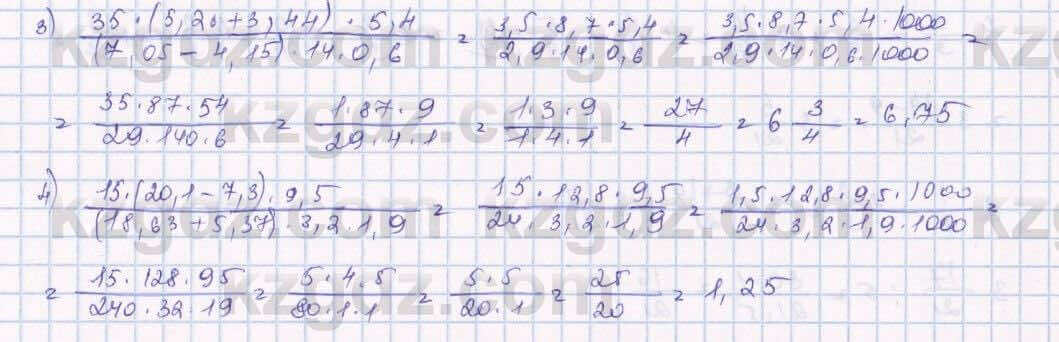 3) 35·(5,26+3,44)·5,4 / (7,05-4,15)·14·0,6 = 3,5·8,7·5,4 / 2,9·14·0,6 = 3,5·8,7·5,4·1000 / 2,9·14·0,6·1000 =
= 35·87·54 / 29·140·6 = 1·87·9 / 29·4·1 = 1·3·9 / 1·4·1 = 27/4 = 6 3/4 = 6,75
4) 15·(20,1-7,3)·9,5 / (18,63+5,37)·3,2·1,9 = 15·12,8·9,5 / 24·3,2·1,9 = 1,5·12,8·9,5·1000 / 24·3,2·1,9·1000 =
= 15·128·95 / 240·32·19 = 5·4·5 / 80·1·1 = 5·5 / 20·1 = 25/20 = 1,25
kzgdz.com